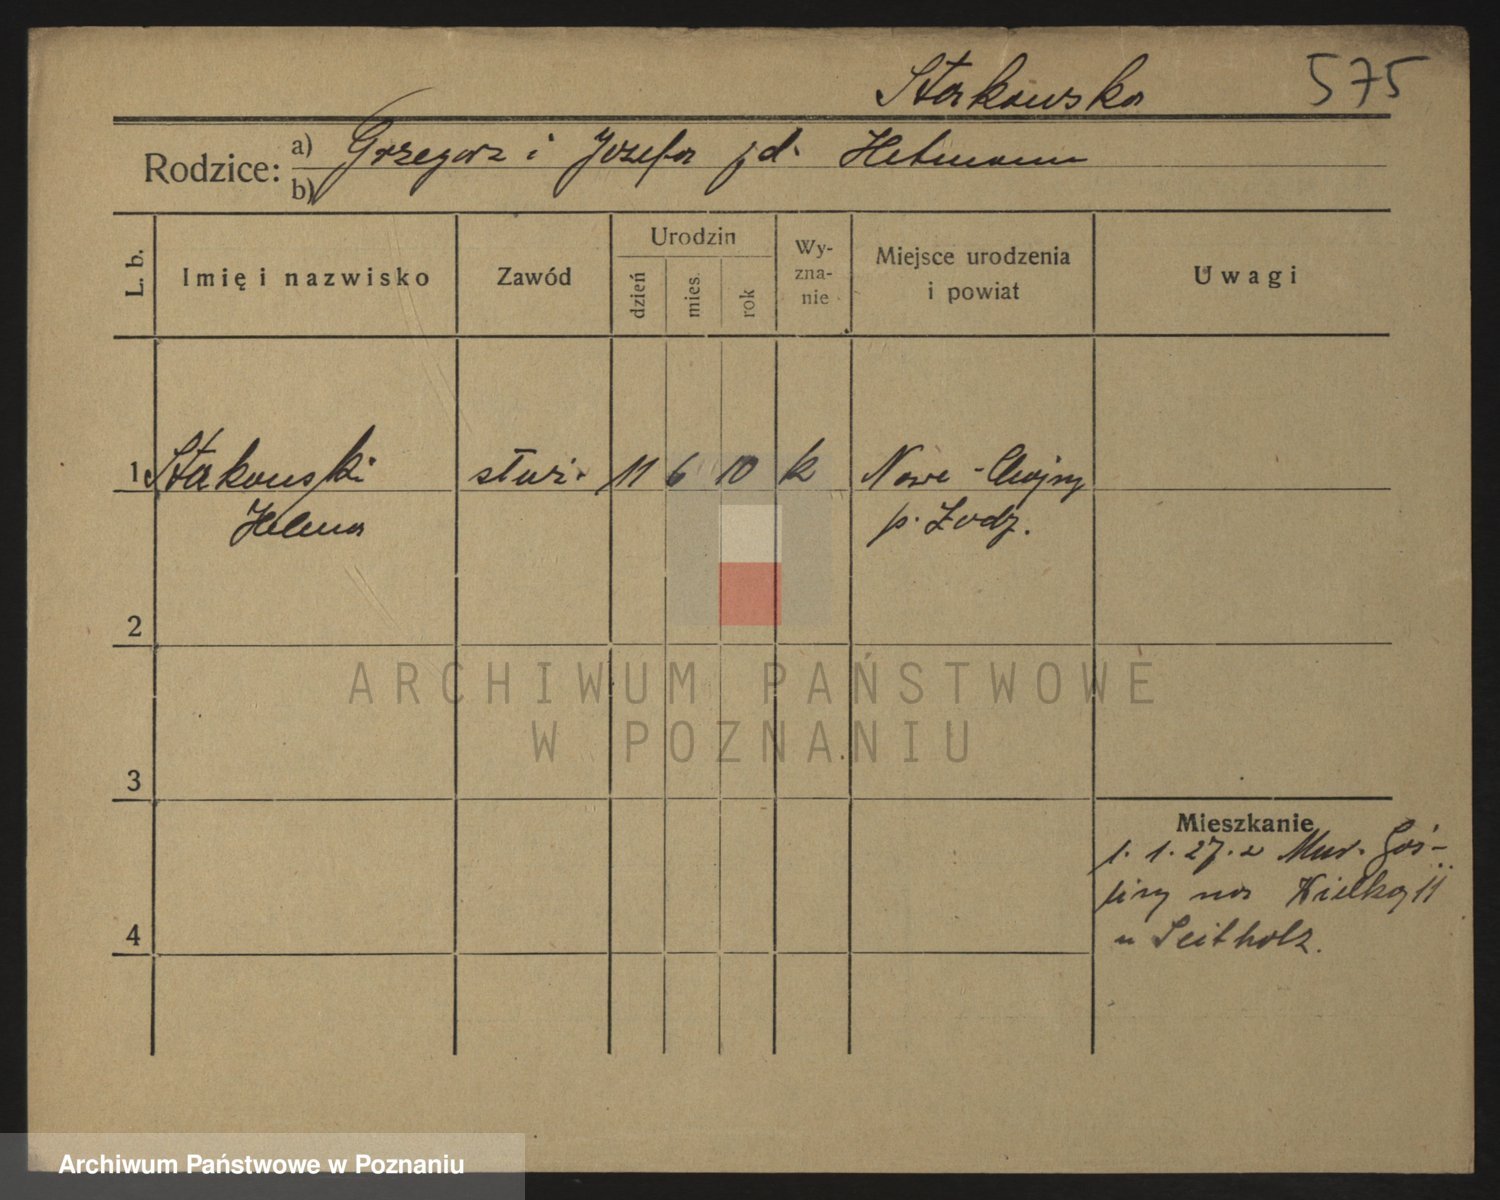 Stakowska 575
Rodzice: a) Grzegorz i Józefa
b)
L. b. Imię i nazwisko Zawód Urodzin dzień mies. rok Wyznanie Miejsce urodzenia i powiat Uwagi
1 Stakowski służ. 11 6 10 k Nowe-Chojny
Helena p. Łódź.
2
3
4
Mieszkanie
1. 1. 27. z Mur. Goś-
liny na Wielką 11
u Seitholz.
ARCHIWUM PAŃSTWOWE
W POZNANIU
Archiwum Państwowe w Poznaniu